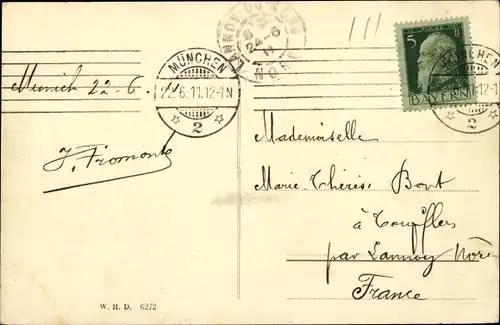 LANNOY DU NORD
24-6
11
NORD
111
5
BAYERN
MÜNCHEN
22.6.11.12-1N
2
MÜNCHEN
2
Munich 22-6.
J. Fromont
Mademoiselle
Marie-Thérèse Bont
à Toufflers
par Lannoy Nord
France
W. H. D. 6272